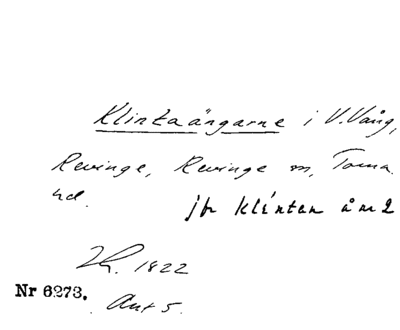 Klintaängarne i V. Vång,
Revinge, Revinge sn, Torna
hd. jfr Klinten å m 2
Lh. 1822
Nr 6273. Akt 5.